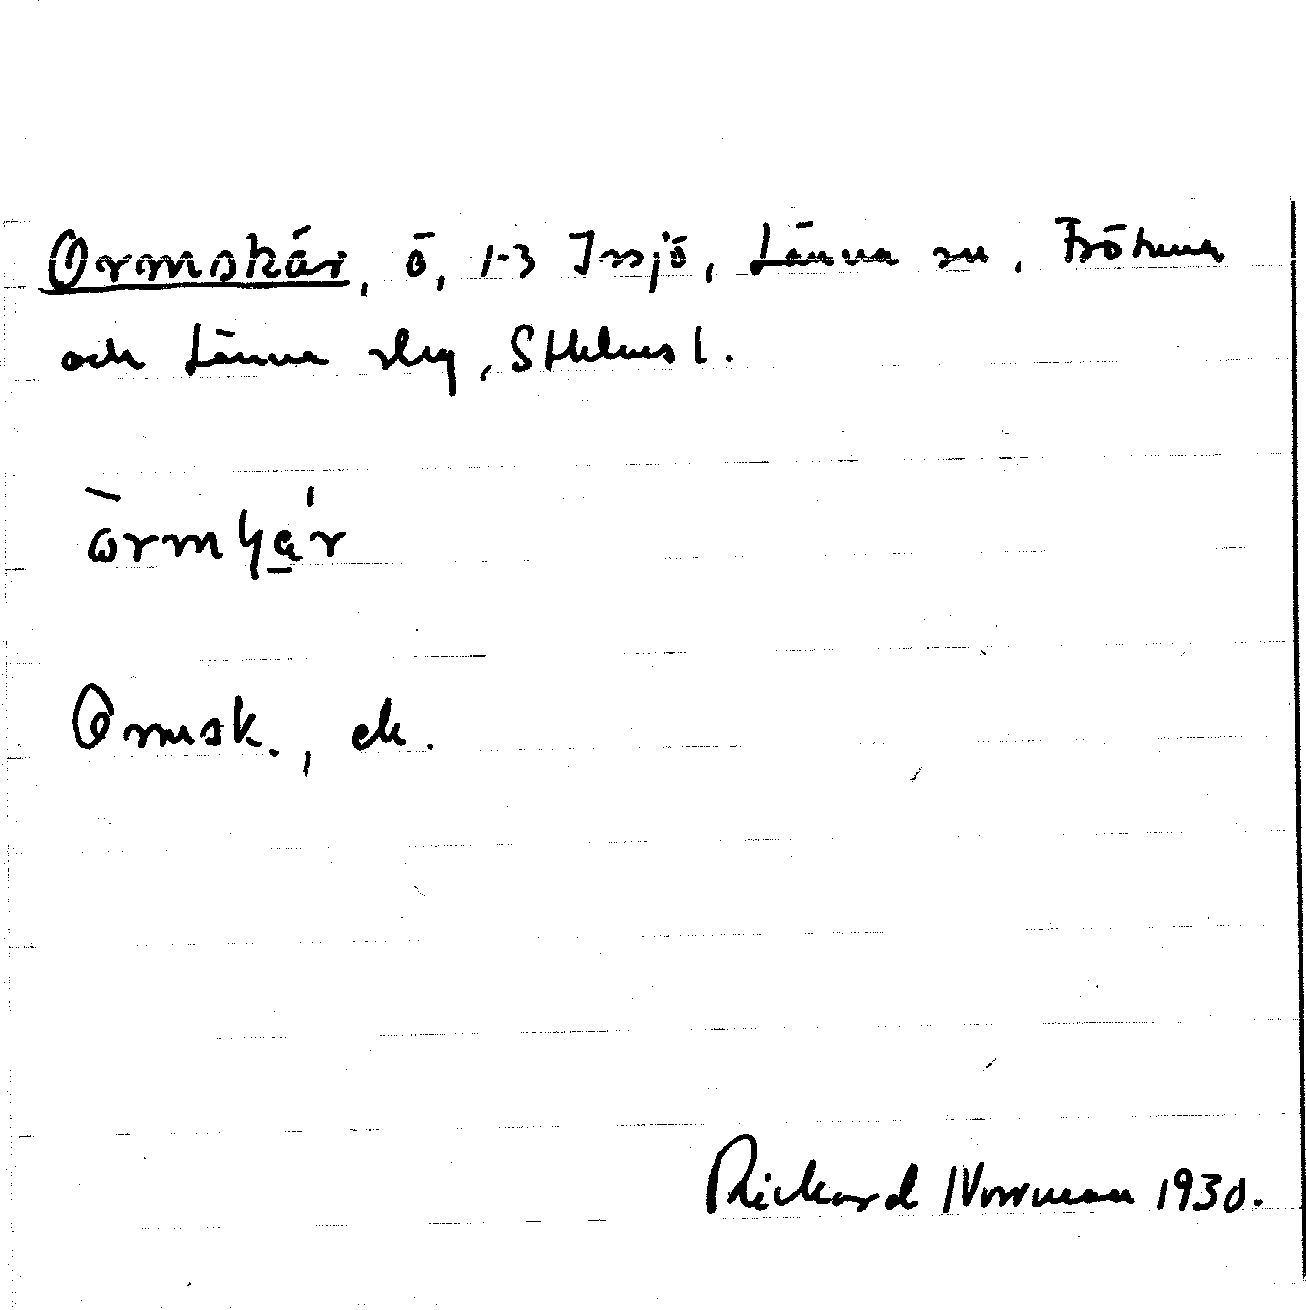 Ormskär, ö, 1-3 Irsjö, Länna sn, Frötuna
och Länna slg, Sthlms l.
Ormsk., ek.
Rickard Norrman 1930.